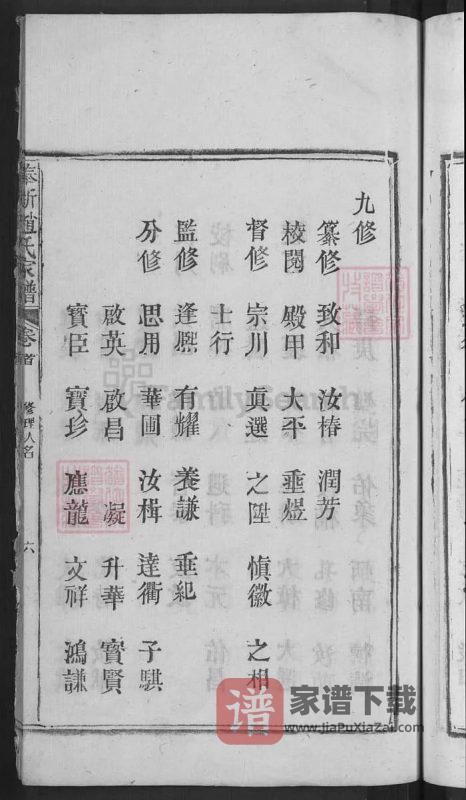 九修
纂修 致和 汝椿 潤芳
校閱 殿甲 大平 垂煜
督修 宗川 眞選 之陞 愼徽 之相
士行
監修 逢熈 有耀 養謙 垂紀
分修 思用 華圃 汝楫 達衢 子騏
啟英 啟昌 凝 升華 寳賢
寳臣 寳珍 應龍 文祥 鴻謙
奉新趙氏家譜 卷首 修理人名 六
FamilySearch
譜 家谱下载
www.jiaPuXiaZai.com